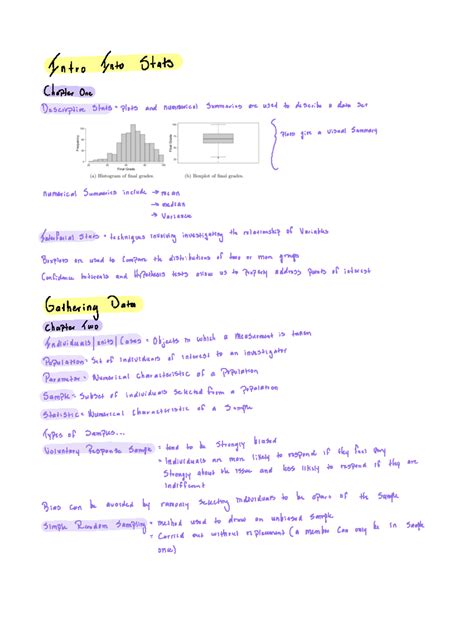 Intro Into Stats
Chapter One
Descriptive Stats = plots and numerical Summaries are used to describe a data set
Frequency
Final Grade
(a) Histogram of final grades.
Final Grade
(b) Boxplot of final grades.
Plots give a visual Summary
numerical Summaries include → mean
→ median
→ Variance
Inferential Stats = techniques involving investigating the relationship of Variables
Boxplots are used to compare the distributions of two or more groups
Confidence intervals and Hypothesis tests allow us to properly address points of interest
Gathering Data
Chapter Two
Individuals/units/Cases = Objects in which a measurement is taken
Population = Set of individuals of interest to an investigator
Parameter = Numerical Characteristic of a Population
Sample = Subset of individuals selected form a population
Statistic = Numerical Characteristic of a Sample
Types of Samples...
Voluntary Response Sample = tend to be Strongly biased
= Individuals are more likely to respond if they feel very
Strongly about the issue and less likely to respond if they are
indifferent
Bias can be avoided by ramonly selecting individuals to be apart of the Sample
Simple Random Sampling = method used to draw an unbiased Sample
= Carried out without replacment (a member can only be in Sample
once)